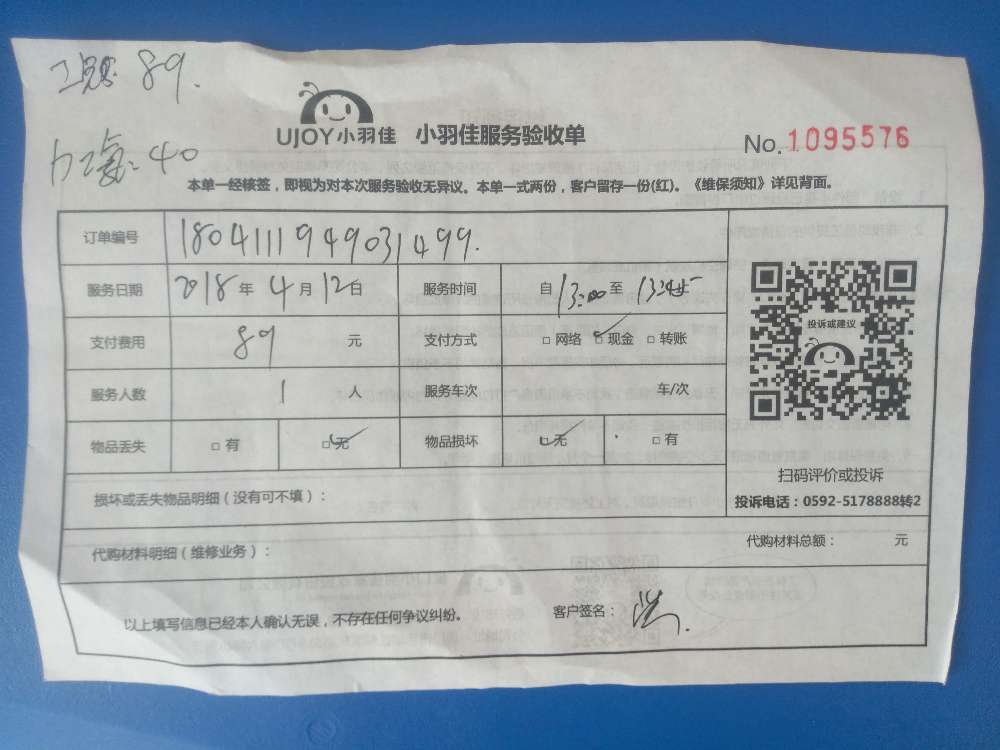 89.
40
UJOY小羽佳 小羽佳服务验收单
No.1095576
本单一经核签，即视为对本次服务验收无异议。本单一式两份，客户留存一份(红)。《维保须知》详见背面。
订单编号 1804111949031499.
服务日期 2018年4月12日 服务时间 自13:00至
支付费用 89 元 支付方式 □网络 □现金 □转账
服务人数 1 人 服务车次 车/次
物品丢失 □有 □无 物品损坏 □无 □有
投诉或建议
扫码评价或投诉
投诉电话：0592-5178888转2
损坏或丢失物品明细（没有可不填）：
代购材料明细（维修业务）： 代购材料总额： 元
以上填写信息已经本人确认无误，不存在任何争议纠纷。 客户签名：